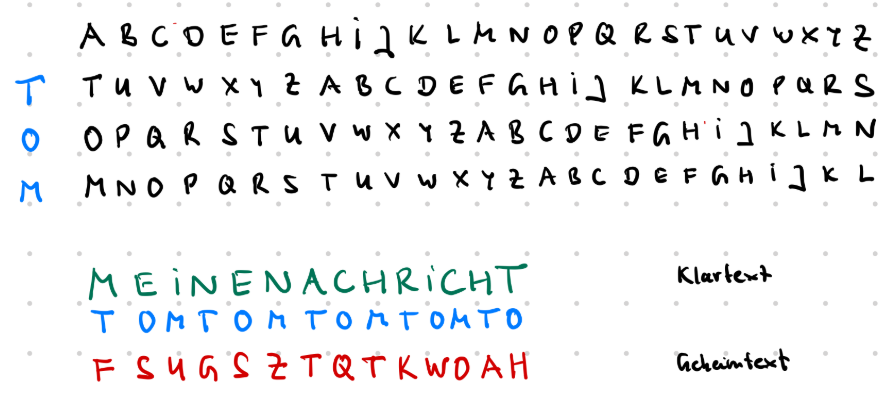 A B C D E F G H i J K L M N O P Q R S T U V W X Y Z
T T U V W X Y Z A B C D E F G H i J K L M N O P Q R S
O O P Q R S T U V W X Y Z A B C D E F G H i J K L M N
M M N O P Q R S T U V W X Y Z A B C D E F G H i J K L
M E i N E N A C H R i C H T Klartext
T O M T O M T O M T O M T O
F S U G S Z T Q T K W O A H Geheimtext